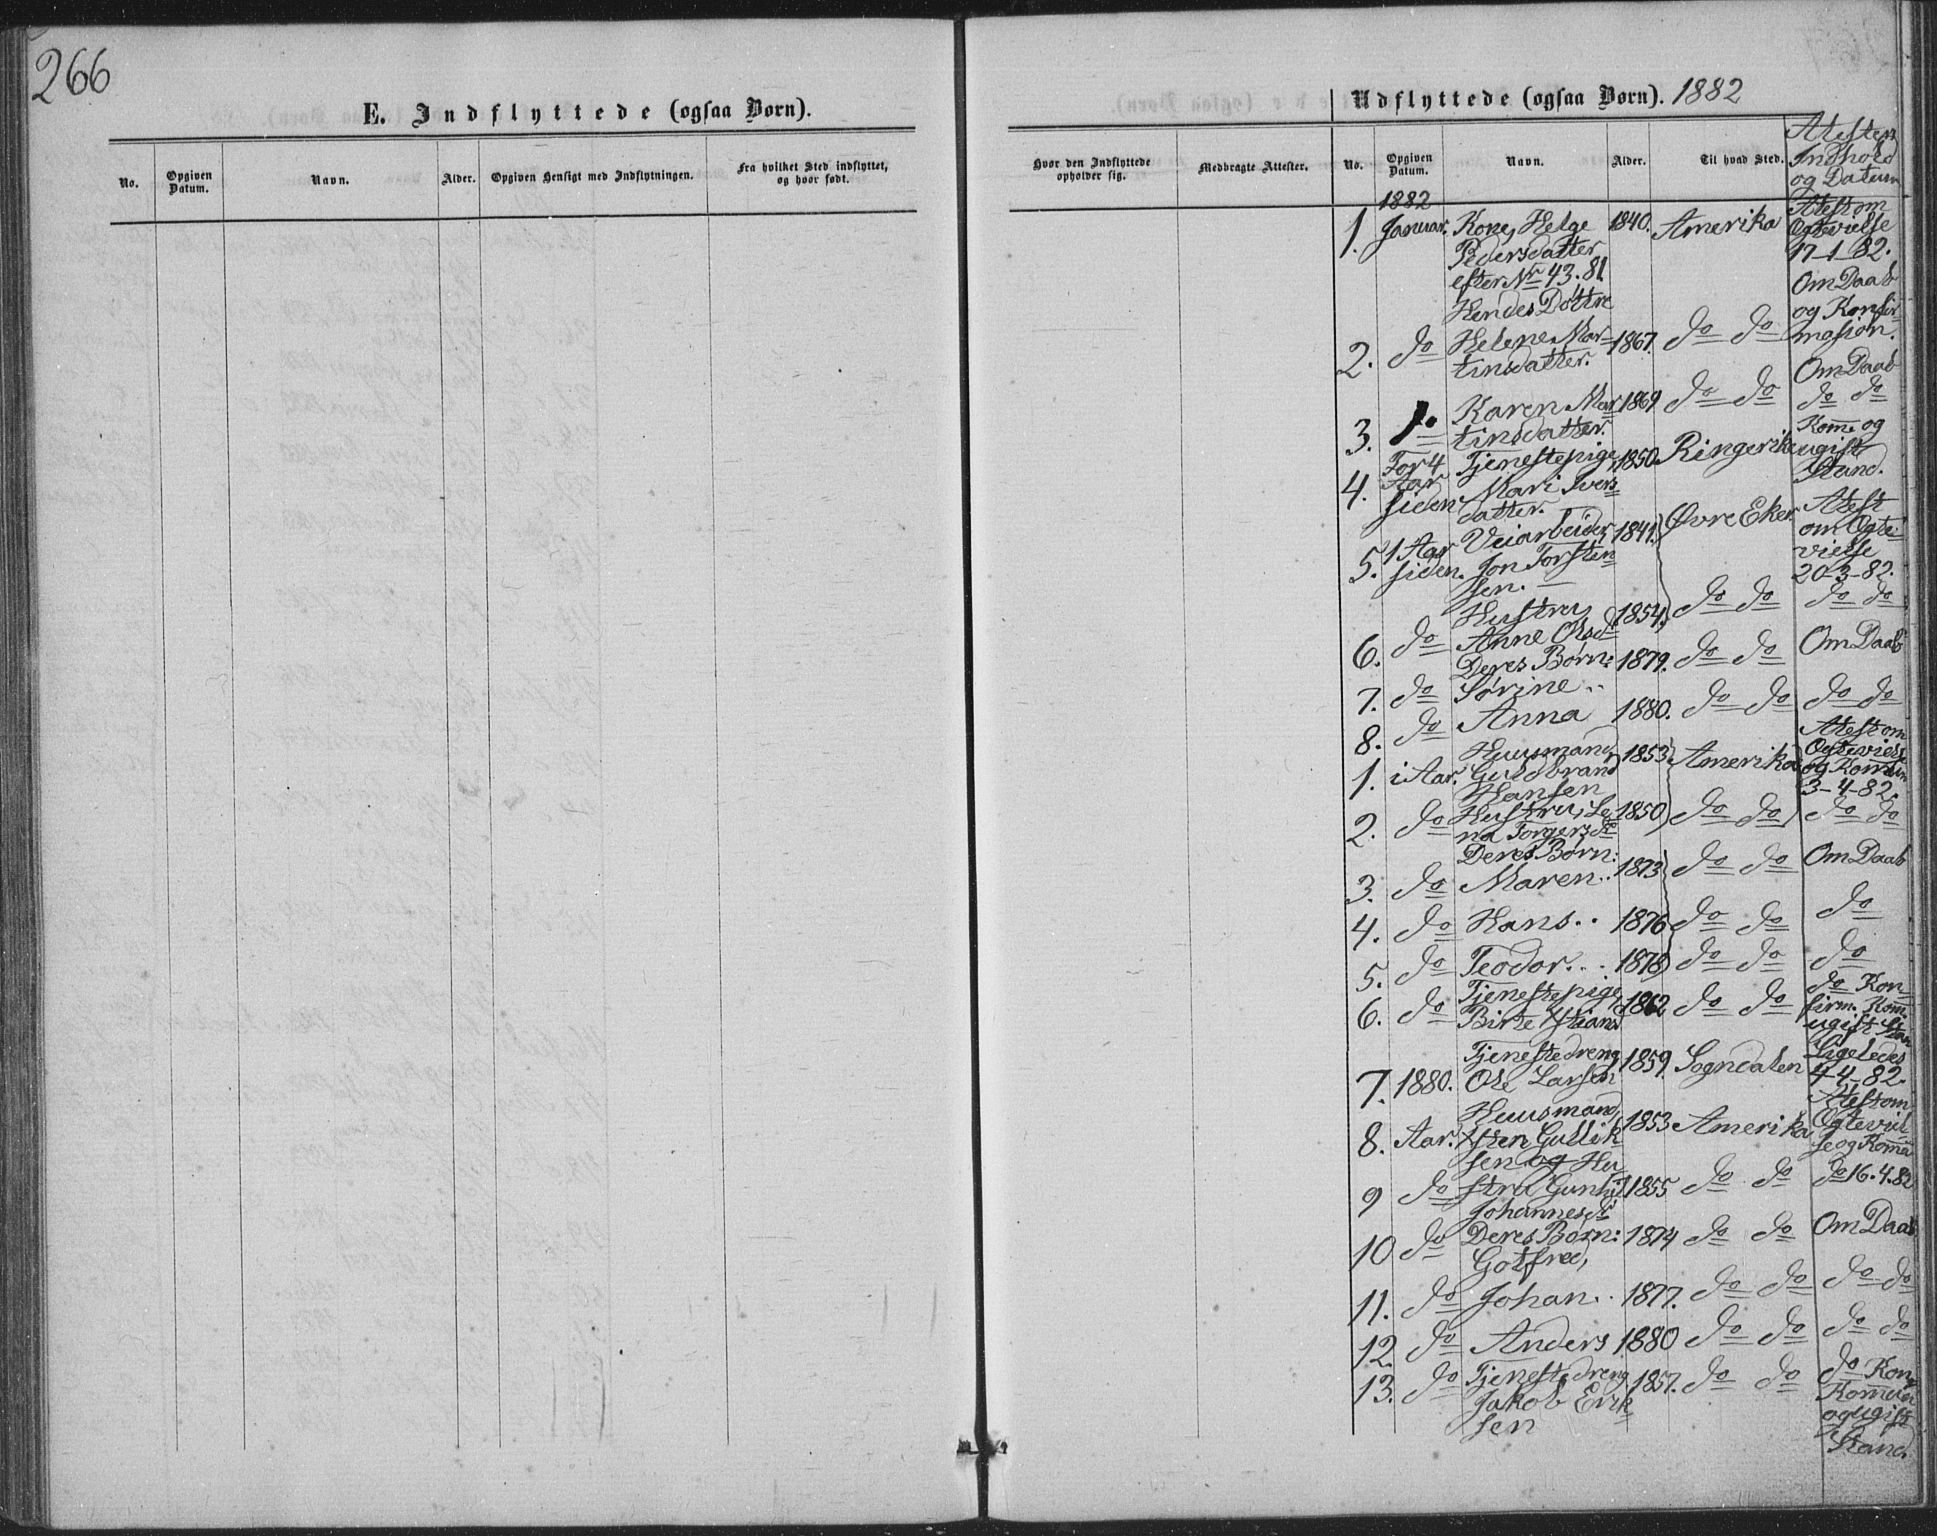 266
E. Indflyttede (ogsaa Børn).
No.
Opgiven Datum.
Navn.
Alder.
Opgiven Hensigt med Indflytningen.
Fra hvilket Sted indflyttet, og hvor født.
Hvor den Indflyttede opholder sig.
Medbragte Attester.
Udflyttede (ogsaa Børn). 1882
No.
Opgiven Datum.
Navn.
Alder.
Til hvad Sted.
Atesten
Indhold
og Datum
1882
1. Januar. Kone, Helge 1840. Amerika Atest om
Pedersdatter Egtevielse
efter Nr 43.81 17-1-82.
Hendes Döttre Om Daab
og Konfir-
2. do Helene Mar- 1867. do do masion.
tinsdatter. Om Daab
3. do Karen Mar 1869 do do do do
tinsdatter.
4. For 4 Tjenestepige, 1850. Ringerike Komm. og
Aar Mari Ivers ugift
siden datter. Stand.
5. 1 Aar Veiarbeider, 1841. Øvre Eker. Atest
siden. Jon Torsten om Egte-
sen. vielse
20-3-82.
6. do Hustru, 1854. do do do do
Anne Olsdr
7. do Deres Børn: 1879. do do Om Daab
Sørine..
8. do Anna 1880. do do do do
1. i Aar. Huusmand, 1853 Amerika Atest om
Guldbrand Egtevielse
Hansen og Komm
3-4-82.
2. do Hustru, Le 1850 do do do do
na Torgersdr
Deres Børn:
3. do Maren.. 1873 do do Om Daab
4. do Hans.. 1876 do do do
5. do Teodor... 1878 do do do
6. do Tjenestepige, 1862 do do do Kon-
Birte firm. Kom.
ugift Stan
7. 1880. Tjenestedreng, 1859. Sogndalen Ligeledes
Ole Larsen 4-4-82.
8. Aar. Huusmand, 1853 Amerika Atest om
Gullik Egteviel
sen og Hu se og Komm
9 do stru Gunhil 1855 do do do 16.4.82
Johannesdr
10 do Deres Børn: 1874 do do Om Daab
Gotfred,
11. do Johan.. 1877. do do do do
12 do Anders 1880 do do do do
13. do Tjenestedreng 1857. do do do Kon
Jakob Erik
sen og ugift
Stand.